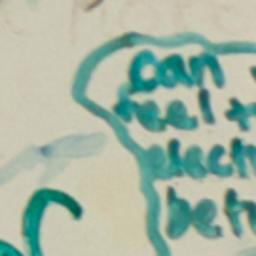 can
feel t
elect
betw